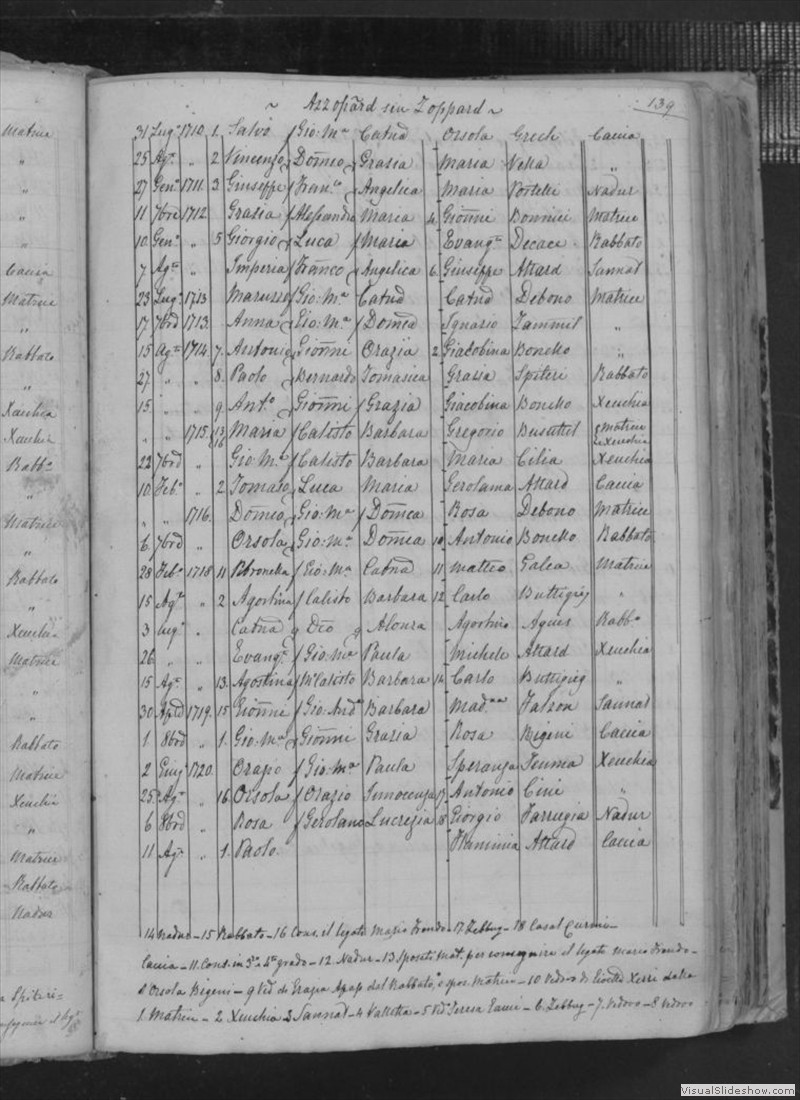 ~ Azzopard seu Zoppard ~
139
31 Lugº 1710. 1. Salvo Gio: Mª Catnd Orsola Grech Caccia
25 Agº " 2 Vincenzo Domco Grasia Maria Vella "
27 Genº 1711. 3. Giuseppe Franco Angelica Maria Portelli Nadur
11 7bre 1712. Grasia Alessandro Maria 4. Gionni Bonnici Matrice
10 Genº " 5 Giorgio Luca Maria Evangta Decace Rabbato
7 Agº " Imperia Franco Angelica 6. Giuseppe Attard Sannat
23 Lugº 1713 Maruzza Gio: Mª Catnd Catnd Debono Matrice
17 7bre 1713. Anna Gio: Mª Domca Ignazio Zammit "
15 Agº 1714. 7. Antonio Gionni Orazia 2 Giacobina Bonello "
27 " " 8. Paolo Bernardo Tomasica Grasia Spiteri Rabbato
15 " " 9. Antº Gionni Grazia Giacobina Bonello Xeuchia
" " 1715. 13 16 Maria Calisto Barbara Gregorio Busuttil Matrice Xeuchia
22 7bre " Gio: Mª Calisto Barbara Maria Cilia Xeuchia
10 Febº " 2 Tomaso Luca Maria Gerolama Attard Caccia
" " 1716. Domco Gio: Mª Domca Rosa Debono Matrice
6. 7bre " Orsola Gio: Mª Domca 10 Antonio Bonello Rabbato
28 Febº 1718 11 Petronella Gio: Mª Catnd 11 Matteo Galea Matrice
15 Agº " 2 Agostina Calisto Barbara 12 Carlo Buttigieg "
3 Lugº " Catnd Dco Alonza Agostino Agius Rabbº
26 " " Evangta Gio: Mª Paula Michele Attard Xeuchia
15 Agº " 13. Agostina Mº Calisto Barbara 14 Carlo Buttigieg "
30 Aple 1719. 15 Gionni Gio: Andª Barbara Madna Falzon Sannat
1 8bre " 1. Gio: Mª Gionni Grazia Rosa Bigeni Caccia
2 Giugº 1720. Orazio Gio: Mª Paula Speranza Teuma Xeuchia
25 Agº " 16. Orsola Orazio Innocenza 17. Antonio Cini "
6 8bre " Rosa Gerolamo Lucrezia 18 Giorgio Farrugia Nadur
11 Agº " 1. Paolo Flaminia Attard Caccia
14 Nadur - 15 Rabbato - 16 Cons. el legato Mario - 17 Zebbug - 18 Casal Curmi -
Caccia - 11. Cons. in 3º - 4º grado - 12 Nadur - 13 Sposati Mat. per conseguire il legato Mario
Orsola Bigeni - 9 Vd. di Grazia Azzop. del Rabbato, e spos. Matrice - 10 Vedovo di
1. Matrice - 2 Xeuchia 3 Sannat - 4 Valletta - 5 Vd. Teresa - 6. Zebbug - 7. Vedovo - 8 Vedovo
Matrice
"
"
"
"
Caccia
Matrice
"
Rabbato
"
Xeuchia
Xeuchia
Rabbº
"
Matrice
"
Rabbato
"
Xeuchia
Matrice
"
"
Rabbato
Matrice
Xeuchia
"
Matrice
Rabbato
Nadur
Spiteri -
VisualSlideshow.com